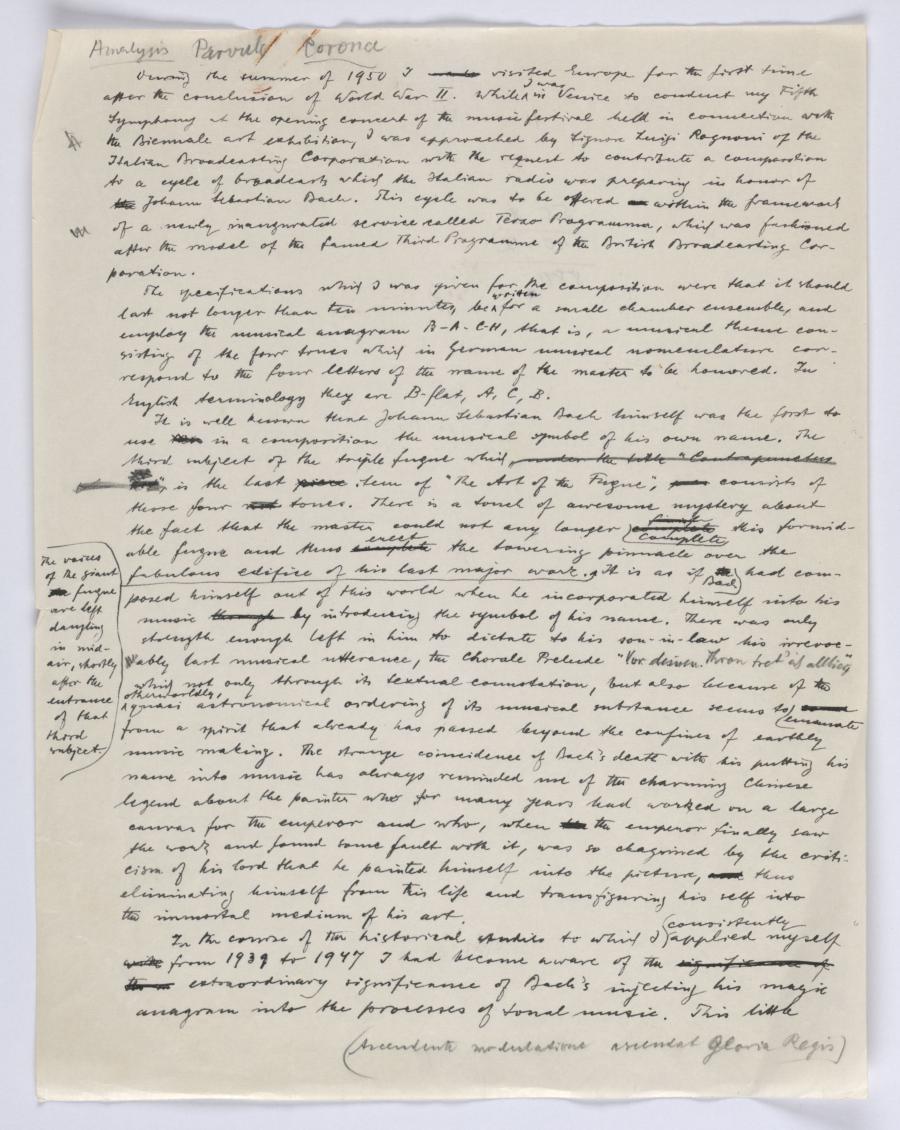 Analysis Parvula Corona
During the summer of 1950 I visited Europe for the first time
after the conclusion of World War II. While I was in Venice to conduct my Fifth
Symphony at the opening concert of the music festival held in connection with
the Biennale art exhibition, I was approached by Signor Luigi Rognoni of the
Italian Broadcasting Corporation with the request to contribute a composition
to a cycle of broadcasts which the Italian radio was preparing in honor of
the Johann Sebastian Bach. This cycle was to be offered within the framework
of a newly inaugurated service called Terzo Programma, which was fashioned
after the model of the famed Third Programme of the British Broadcasting Cor-
poration.
The specifications which I was given for the composition were that it should
last not longer than ten minutes, be written for a small chamber ensemble, and
employ the musical anagram B-A-C-H, that is, a musical theme con-
sisting of the four tones which in German musical nomenclature cor-
respond to the four letters of the name of the master to be honored. In
English terminology they are B-flat, A, C, B.
It is well known that Johann Sebastian Bach himself was the first to
use in a composition the musical symbol of his own name. The
third subject of the triple fugue which, under the title "Contrapunctus
is the last piece item of "The Art of the Fugue", consists of
those four tones. There is a touch of awesome mystery about
the fact that the master could not any longer finish complete complete this formid-
able fugue and thus complete erect the towering pinnacle over the
fabulous edifice of his last major work. It is as if Bach had com-
posed himself out of this world when he incorporated himself into his
music through by introducing the symbol of his name. There was only
strength enough left in him to dictate to his son-in-law his irrevoc-
ably last musical utterance, the Chorale Prelude "Vor deinen Thron tret' ich allhier,"
which not only through its textual connotation, but also because of the
otherworldly, quasi astronomical ordering of its musical substance seems to emanate
from a spirit that already has passed beyond the confines of earthly
music making. The strange coincidence of Bach's death with his putting his
name into music has always reminded me of the charming Chinese
legend about the painter who for many years had worked on a large
canvas for the emperor and who, when the emperor finally saw
the work and found some fault with it, was so chagrined by the criti-
cism of his lord that he painted himself into the picture, and thus
eliminating himself from this life and transfiguring his self into
the immortal medium of his art.
In the course of the historical studies to which I consistently applied myself
from 1939 to 1947 I had become aware of the significance of
extraordinary significance of Bach's injecting his magic
anagram into the processes of tonal music. This little
(Ascendente modulatione ascendat Gloria Regis)
The voices
of the giant
fugue
are left
dangling
in mid-
air, shortly
after the
entrance
of that
third
subject.